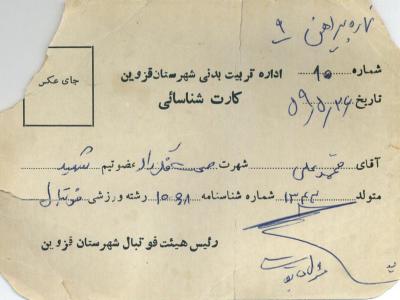 نمره پیراهن ۹
شماره ۱۰ اداره تربیت بدنی شهرستان قزوین
جای عکس
کارت شناسائی
تاریخ ۵۹/۵/۲۶
آقای محمد علی شهرت عضو تیم شهید
متولد ۱۳۴۲ شماره شناسنامه ۱۰۶۸۱ رشته ورزشی فوتبال
رئیس هیئت فوتبال شهرستان قزوین